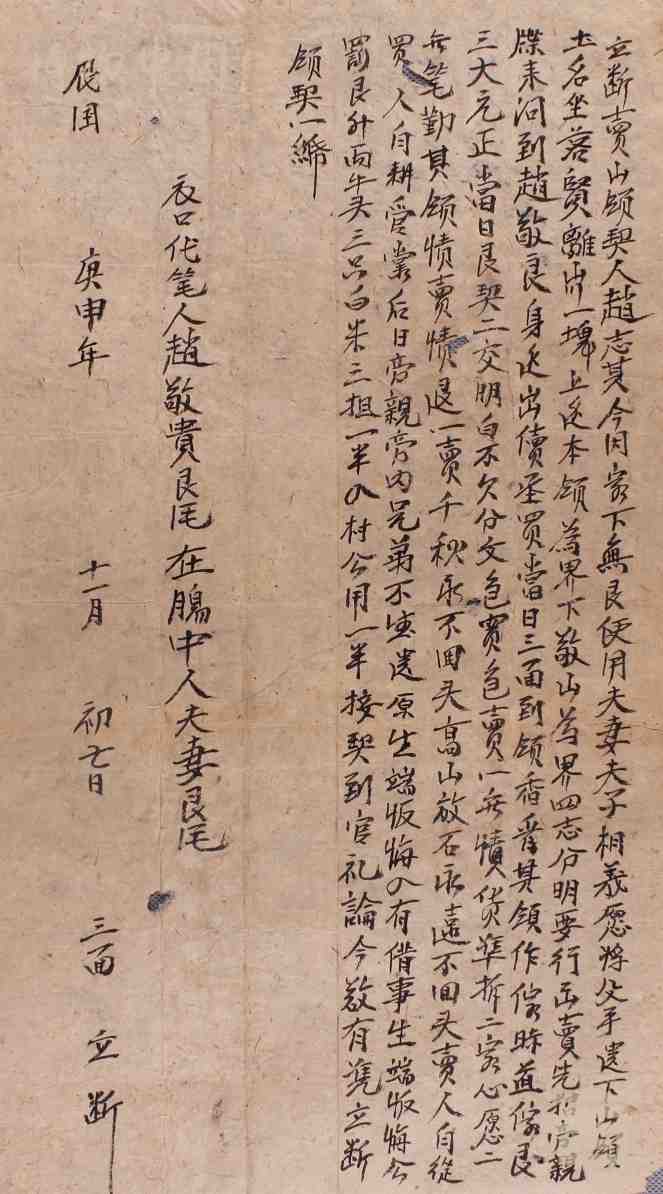 立断賣山領契人趙志其今因家下無艮使用夫妻夫子相義愿将父手遗下山領
土名坐落賢離冲一塊上还本領為界下敬山為界四志分明要行出賣先招旁親
来问到趙敬良身还出償承買當日三面到領香其領作價時直價艮
三大元正當日艮契二交明白不欠分文包賣包賣一無債货準折二家心愿二
無笔勤其領情賣情退一賣千秋永不回头高山放石永遠不回头賣人自從
買人自耕受業后日旁親旁内兄弟不遗原生端反悔入有借事生端反悔公
罰艮卄両牛头三只白米三担一半入村公用一半接契到官礼論今敬有凭立断
領契一
衣口代笔人趙敬貴艮 在塲中人夫妻艮
民国 庚申年 十一月 初七日 三面 立断